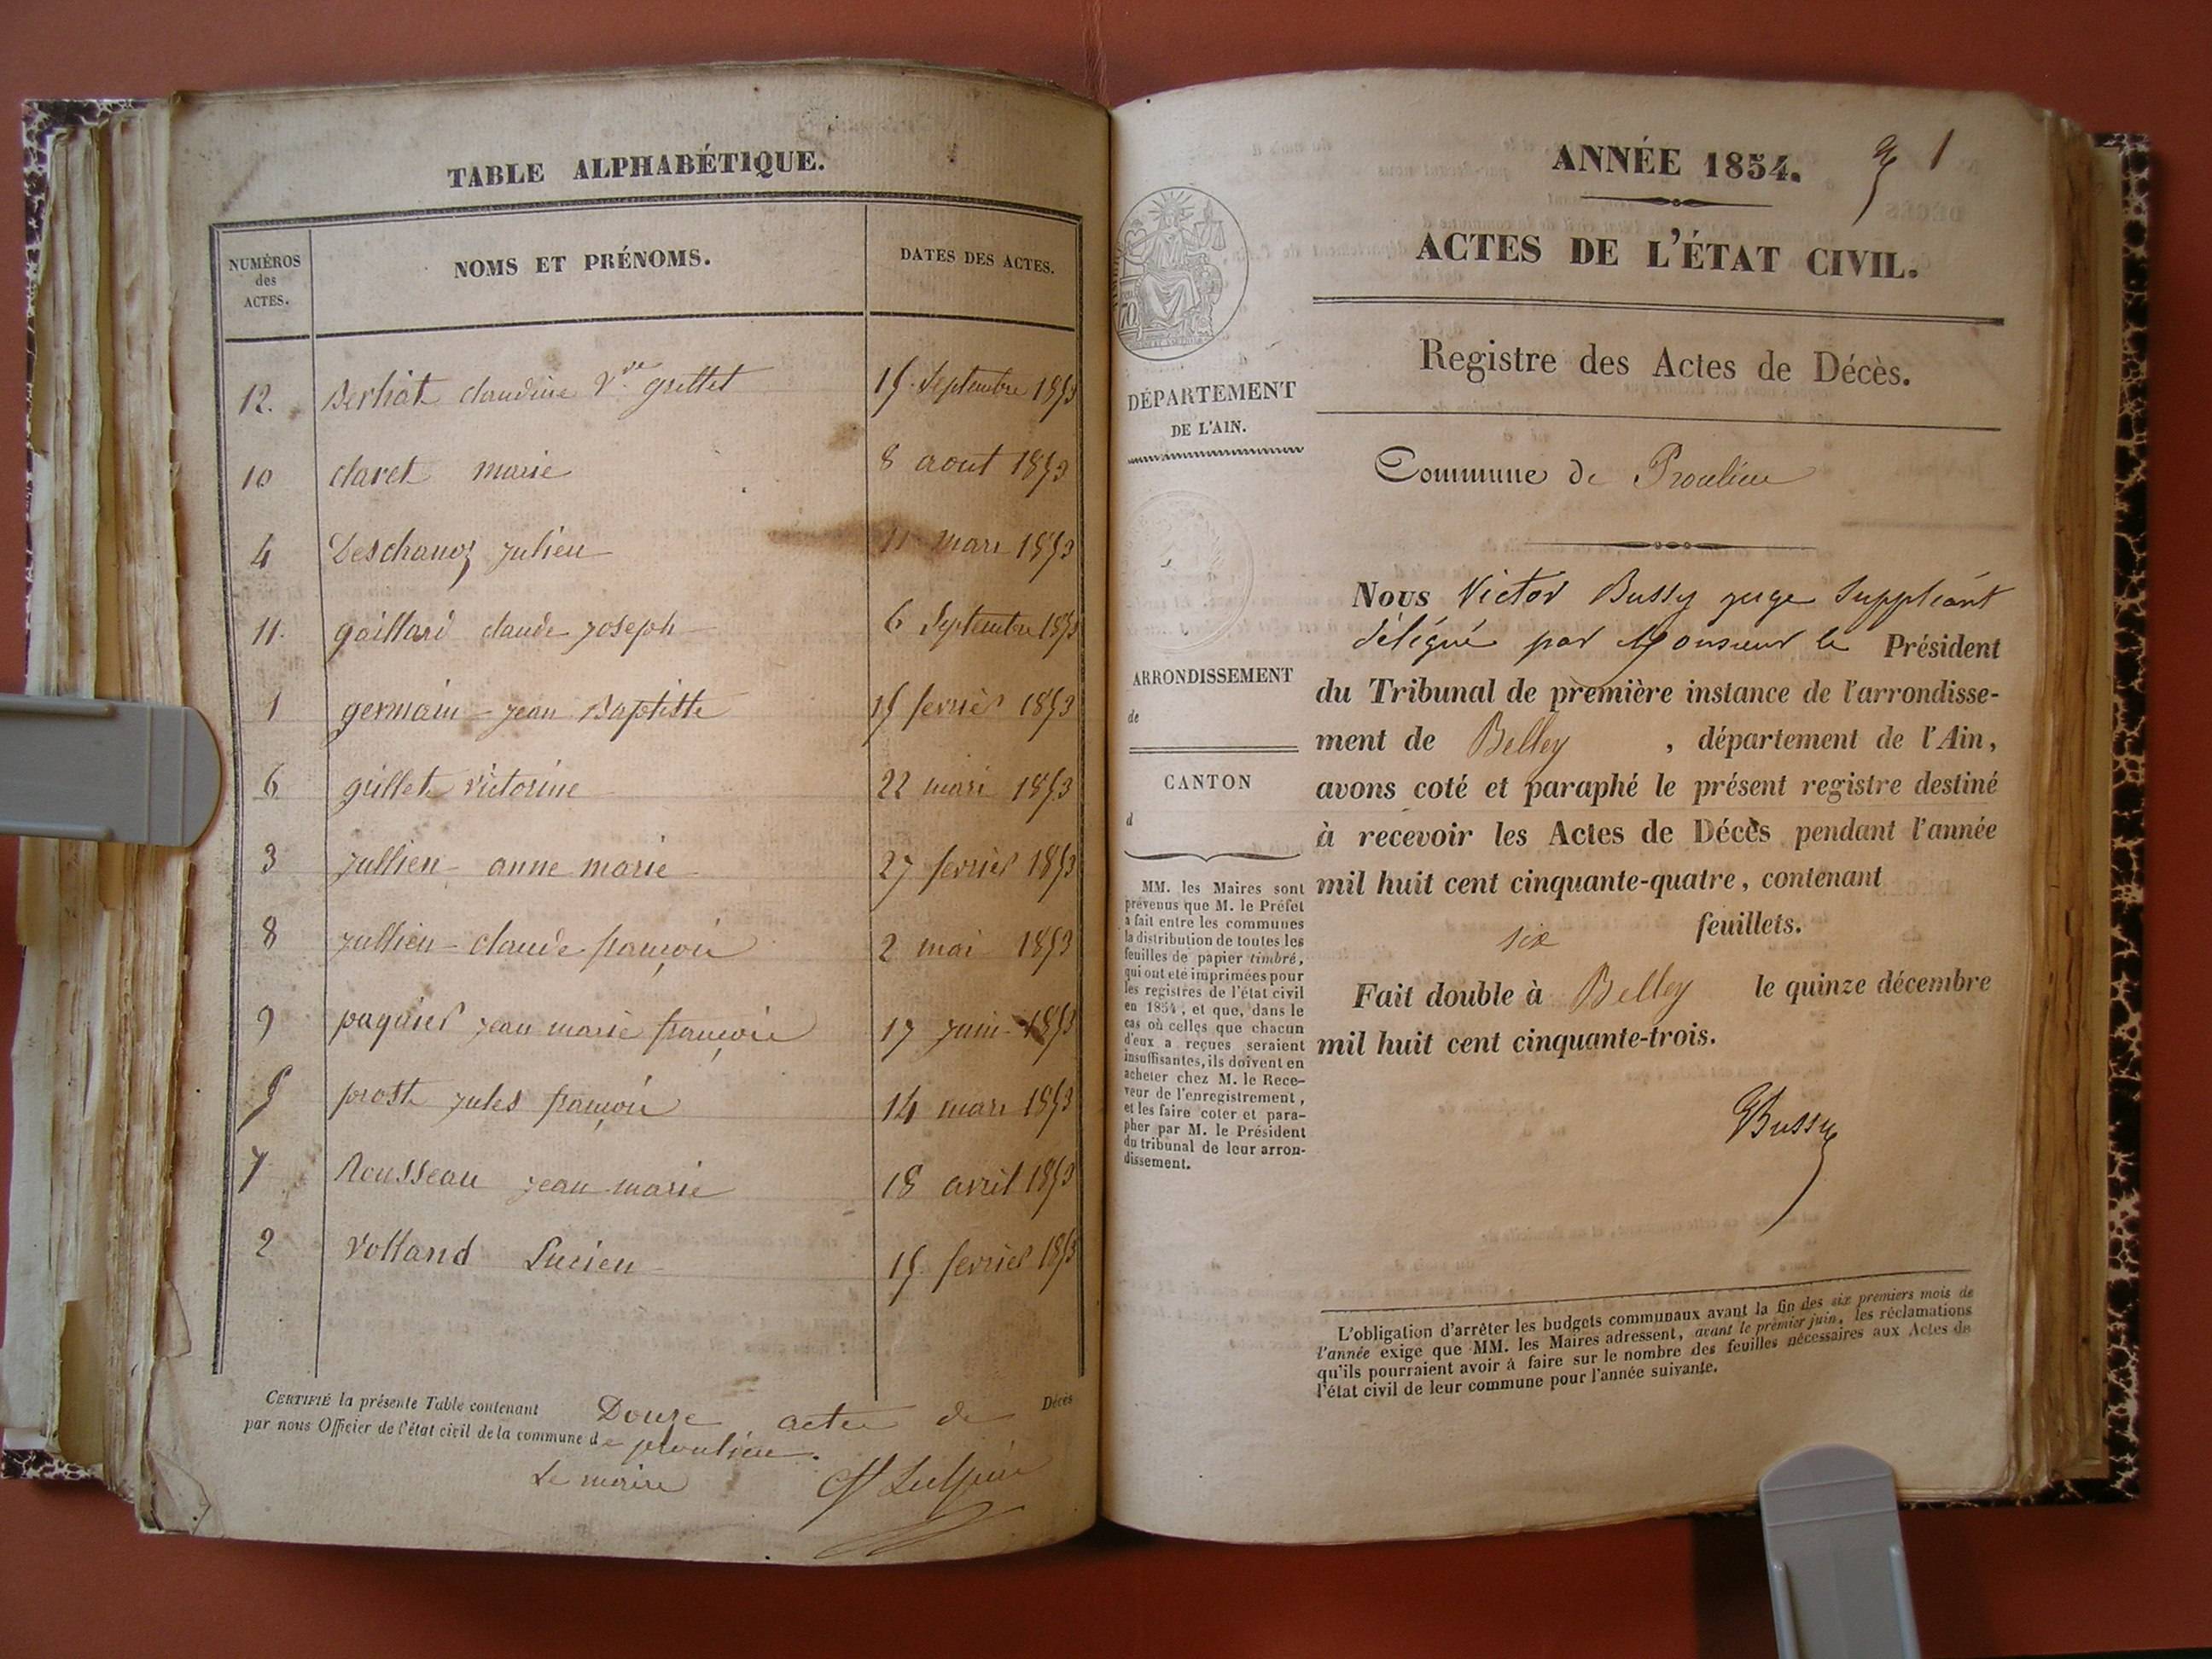 TABLE ALPHABÉTIQUE.
NUMÉROS
des
ACTES.
NOMS ET PRÉNOMS.
DATES DES ACTES.
12. Berhät claudine Vve grillet 15 Septembre 1853
10 claret marie 8 aout 1853
4 Deschanoz julien 11 mars 1853
11. gaillard claude joseph 6 Septembre 1853
1 germain jean Baptiste 15 fevrier 1853
6 grillet victorine 22 mars 1853
3 jullien anne marie 27 fevrier 1853
8 jullien claude françois 2 mai 1853
9 paquier jean marie françois 17 juin 1853
5 prost jules françois 14 mars 1853
7 Rousseau jean marie 18 avril 1853
2 volland Lucien 15 fevrier 1853
CERTIFIÉ la présente Table contenant Douze actes de Décès
par nous Officier de l'état civil de la commune de proulieu.
Le maire
ANNÉE 1854. 1
ACTES DE L'ÉTAT CIVIL.
Registre des Actes de Décès.
Commune de Proulieu
Nous Victor Bussy juge Suppléant
délégué par Monsieur le Président
du Tribunal de première instance de l'arrondisse-
ment de Belley , département de l'Ain,
avons coté et paraphé le présent registre destiné
à recevoir les Actes de Décès pendant l'année
mil huit cent cinquante-quatre, contenant
six feuillets.
Fait double à Belley le quinze décembre
mil huit cent cinquante-trois.
Bussy
DÉPARTEMENT
DE L'AIN.
ARRONDISSEMENT
de
CANTON
d
MM. les Maires sont
prévenus que M. le Préfet
a fait entre les communes
la distribution de toutes les
feuilles de papier timbré,
qui ont été imprimées pour
les registres de l'état civil
en 1854, et que, dans le
cas où celles que chacun
d'eux a reçues seraient
insuffisantes, ils doivent en
acheter chez M. le Rece-
veur de l'enregistrement,
et les faire coter et para-
pher par M. le Président
du tribunal de leur arron-
dissement.
L'obligation d'arrêter les budgets communaux avant la fin des six premiers mois de
l'année exige que MM. les Maires adressent, avant le premier juin, les réclamations
qu'ils pourraient avoir à faire sur le nombre des feuilles nécessaires aux Actes de
l'état civil de leur commune pour l'année suivante.